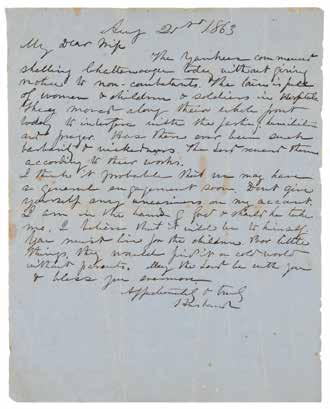 Aug 21st 1863
My Dear Wife
The Yankees commenced
shelling Chattanooga today without giving
notice to non-combatants. The town is full
of women & children & soldiers in Hospitals
They moved along their whole front
today to interfere with the fasting humiliation
and prayer. Was there ever been such
barbarity & wickedness. The Lord reward them
according to their works.
I think it probable that we may have
a general engagement soon. Dont give
yourself any uneasiness on my account.
I am in the hands of God & should he take
me. I believe that it will be to himself
You must live for the children. Poor little
things, they would find it a cold world
without parents. May the Lord be with you
& bless you evermore
Affectionately & truly
Husband